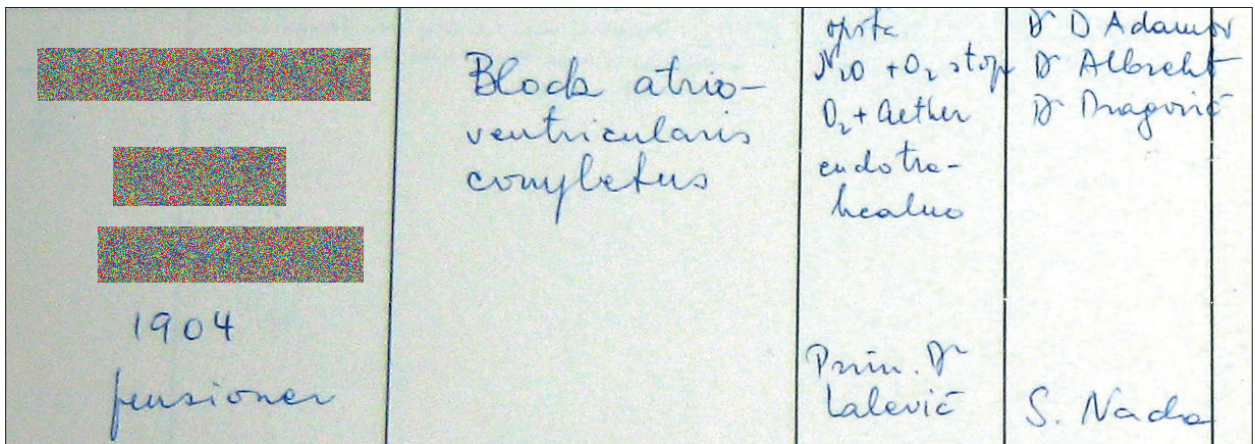 1904
pensioner
Block atrio-
ventricularis
completus
opšta
N2O + O2 stop
O2 + Aether
endotra-
healno
Prim. Dr
Lalević
Dr D Adamov
Dr Albreht
Dr Dragović
S. Nada